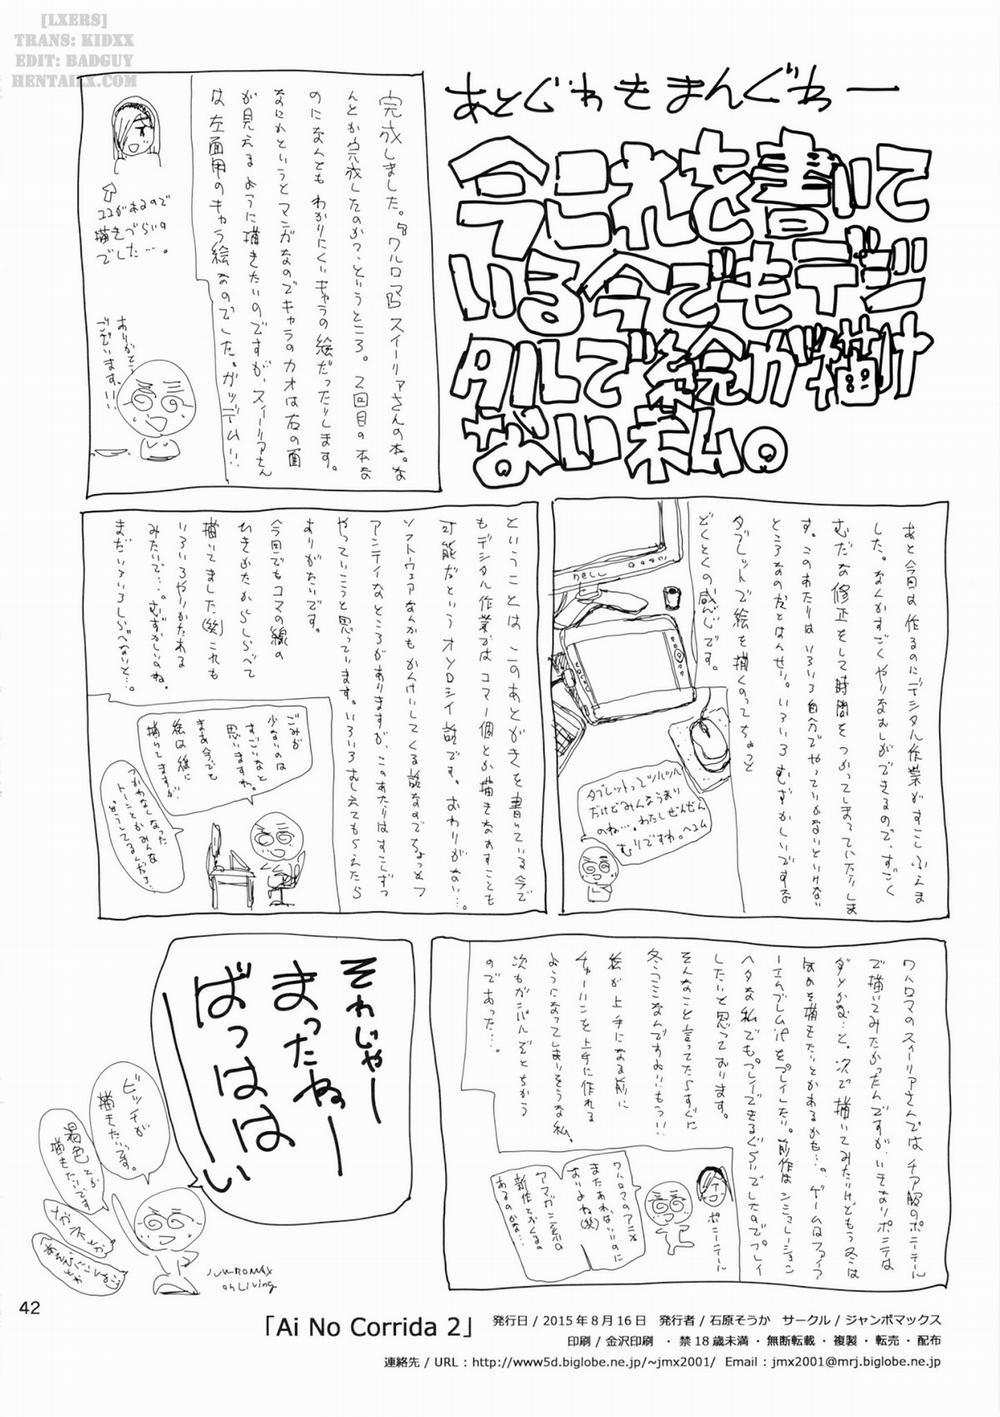 [LXERS]
TRANS: KIDXX
EDIT: BADGUY
HENTAIXX.COM
あとがきまんがー
今これを書いて
いる今でもデジ
タルで絵が描け
ない私。
完成しました。『ワルロマ』スイーリアさんの本。な
んとか完成したのか?、というところ。2回目の本な
のになんともわかりにくいキャラの絵だったりします。
なにかというとマンガなのでキャラのカオは右の面
が見えるように描きたいのですが、スイーリアさん
は左面用のキャラ絵なのでした。ガッデム!!
ココがあるので
描きづらいの
でした…。
ありがとう
ございます!!
あと今回は作るのにデジタル作業がすこしふえま
した。なんかすごくやりなおしができるので、すごく
むだな修正をして時間をつかってしまっていたりしま
す。このあたりはいろいろ自分でやっていかないといけない
ところなのだとはんせい。いろいろむずかしいですな
タブレットで絵を描くのってちょっと
どくとくの感じです。
DELL
タブレットってツルツル
だけどみんなうまい
のね…。わたしぜんぜん
むりですわ。
ということは、このあとがきを書いている今で
もデジタル作業ではコマ一個とか描きなおすことも
可能だというオソロシイ話です。おわりがない…。
ソフトウェアなんかもかんけいしてくる話なのでちょっと
アンティなところがありますが、このあたりはすこしずつ
やっていこうと思っています。いろいろおしえてもらえたら
ありがたいです。
今回でもコマの線の
ひきかたからしらべて
描いてました(笑)これも
いろいろやりかたある
みたいで…。むずかしいね。
まだいろいろしらべないと…。
ごみが
少ないのは
すごいなと
思いますわ。
まあ今でも
絵は紙に
描いてますが
つかわなくなった
トーンとかみんな
どうしてるんだろ…
ワルロマのスイーリアさんではチア服のポニーテール
で描いてみたかったんですが、いきなりポニテは
ダメかな…と。次で描いてみたいけどもう冬は
べつのを描きたいとかあるかも…。ゲームはファイア
ーエムブレムifをプレイしたい。前作はシミュレーション
ヘタな私でもプレイできるぐらいでしたのでプレイ
したいと思っております。
そんなこと言ってたらすぐに
冬コミなんですよ!!もう!!
絵が上手になる前に
チャーハンを上手に作れる
ようになってしまいそうな私。
次もガンバルぞとちかう
のであった…。
ポニーテール
ワルロマのアニメ
またあれないいのに
おりよね(笑)
アマガミ系の
新作とかくるの
あるのかな…
それじゃー
まったねー
ばっはは
ーい
ビッチが
描きたいです。
褐色とか
描きたいです
メガネとか
JUMBOMAX
on Living
42
「Ai No Corrida 2」
発行日 / 2015年8月16日　発行者 / 石原そうか　サークル / ジャンボマックス
印刷 / 金沢印刷　・禁18歳未満・無断転載・複製・転売・配布
連絡先 / URL : http://www5d.biglobe.ne.jp/~jmx2001/　Email : jmx2001@mrj.biglobe.ne.jp